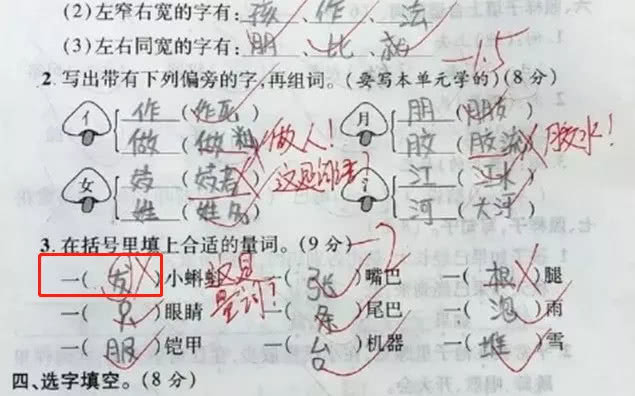 (2)左窄右宽的字有:孩、作、法
(3)左右同宽的字有:朋、比、
-1.5
2.写出带有下列偏旁的字,再组词。(要写本单元学的)(8分)
亻 作(作死) 月 朋(朋)
做(做) 做人! 胶(胶流) 胶水!
女 妓(妓者) 这是 氵 江(江水)
姓(姓名) 河(大河)
3.在括号里填上合适的量词。(9分) -2
一(发)小蝌 这是量词? 一(张)嘴巴 一(根)腿
一(只)眼睛 一(条)尾巴 一(泡)雨
一(服)铠甲 一(台)机器 一(堆)雪
四、选字填空。(8分)